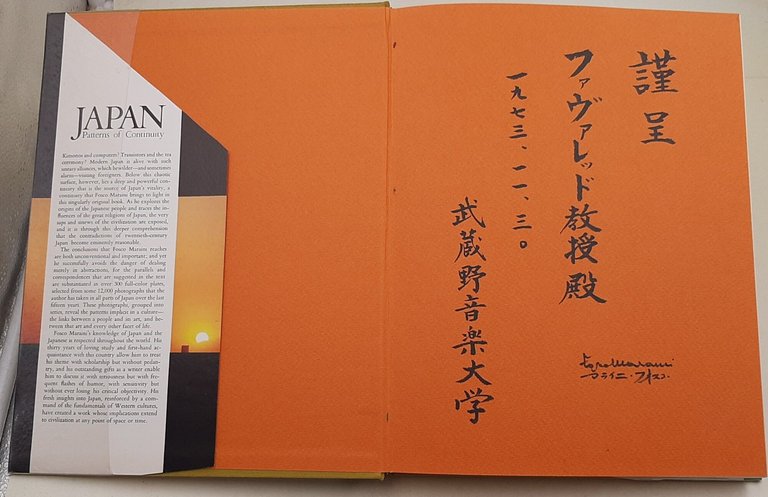 JAPAN
Patterns of Continuity
Kimonos and computers? Transistors and the tea
ceremony? Modern Japan is alive with such
unwary alliances, which bewilder—and sometimes
alarm—visiting foreigners. Below this chaotic
surface, however, lies a deep and powerful con-
tinuity that is the source of Japan's vitality, a
continuity that Fosco Maraini brings to light in
this singularly original book. As he explores the
origins of the Japanese people and traces the in-
fluences of the great religions of Japan, the very
sinews of the civilization are exposed,
and it is through this deeper comprehension
that the contradictions of twentieth-century
Japan become eminently reasonable.
The conclusions that Fosco Maraini reaches
are both unconventional and important; and yet
he successfully avoids the danger of dealing
merely in abstractions, for the parallels and
correspondences that are suggested in the text
are substantiated in over 300 full-color plates,
selected from some 12,000 photographs that the
author has taken in all parts of Japan over the last
fifteen years. These photographs, grouped into
series, reveal the patterns implicit in a culture—
the links between a people and its art, and be-
tween that art and every other facet of life.
Fosco Maraini's knowledge of Japan and the
Japanese is respected throughout the world. His
thirty years of loving study and first-hand ac-
quaintance with this country allow him to treat
his theme with scholarship but without pedan-
try, and his outstanding gifts as a writer enable
him to discuss it with seriousness but with fre-
quent flashes of humor, with sensitivity but
without ever losing his critical objectivity. His
fresh insights into Japan, reinforced by a com-
mand of the fundamentals of Western cultures,
have created a work whose implications extend
to civilization at any point of space or time.
謹呈
ファヴァレッド教授殿
一九七三、一一、三〇
武蔵野音楽大学
Fosco Maraini
マライニ・フォスコ